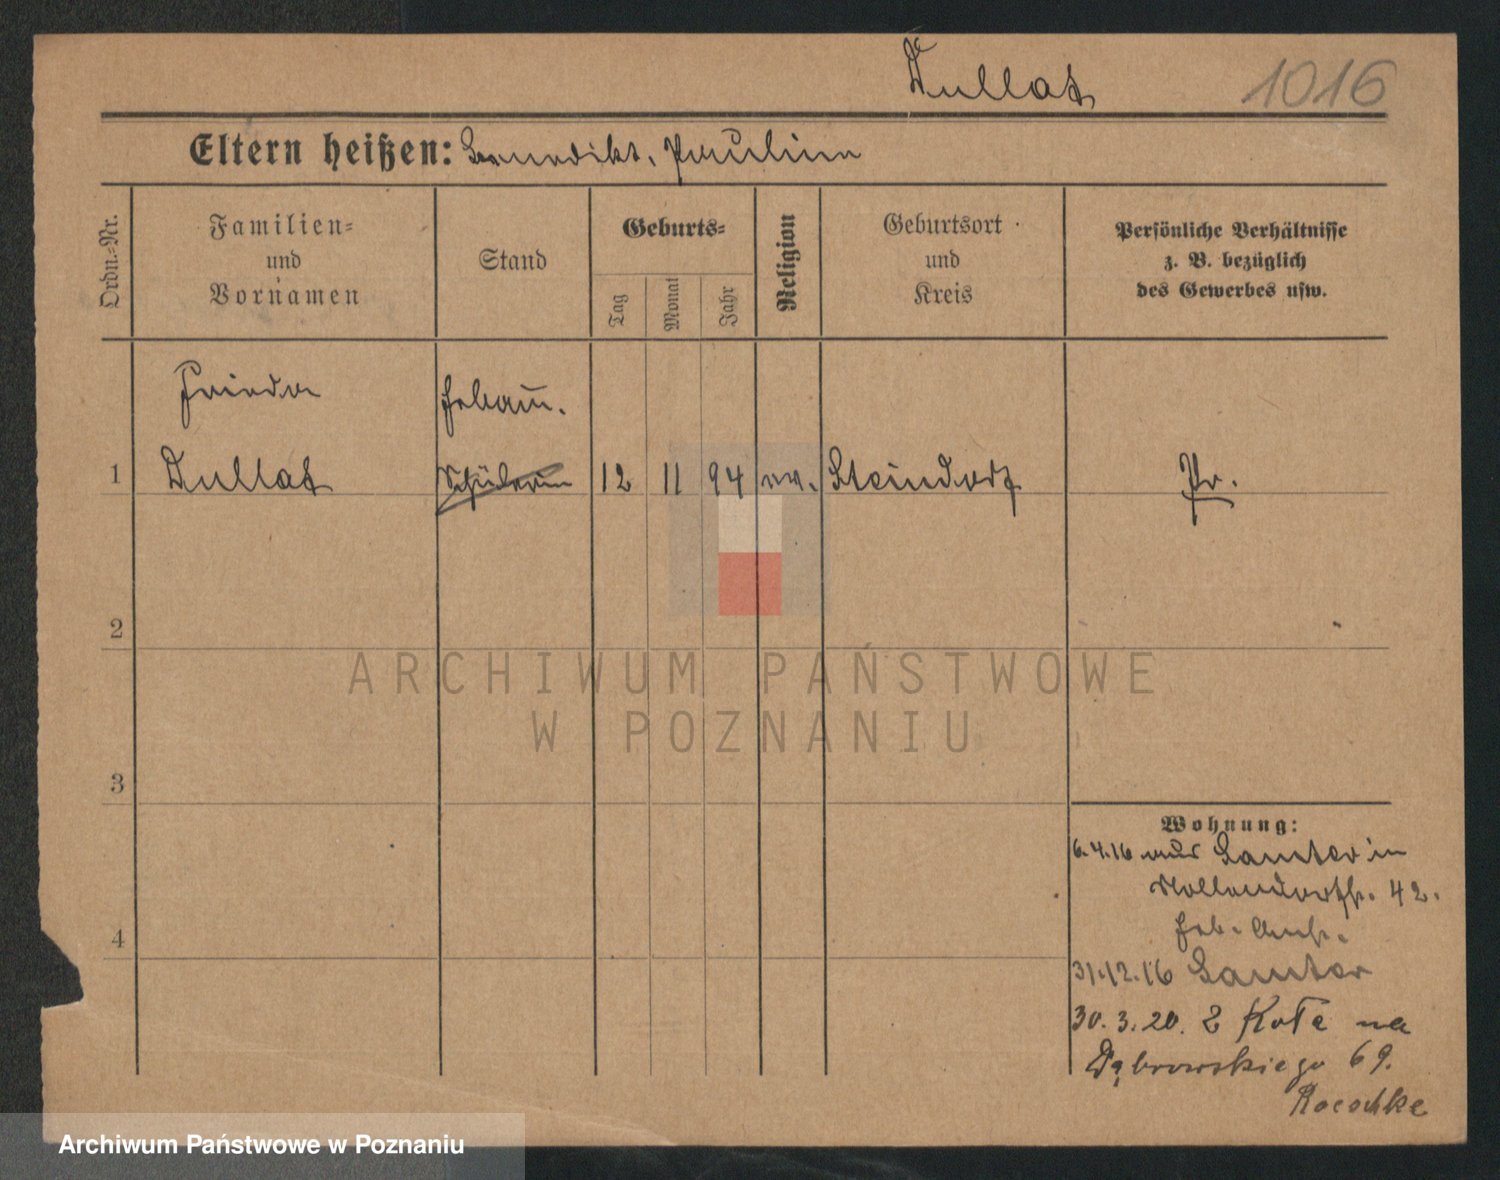 Dullat 1016
Eltern heißen: Benedikt, Pauline
Ordn.-Nr.
Familien-
und
Vornamen
Stand
Geburts-
Tag
Monat
Jahr
Religion
Geburtsort
und
Kreis
Persönliche Verhältnisse
z. B. bezüglich
des Gewerbes usw.
Frieda
1 Dullat Schülerin 12 11 94 ev. Steindorf Pr.
2
3
4
Wohnung:
6.4.16 aus Samter in
42.
31.12.16 Samter
30.3.20. Z Koła na
Dąbrowskiego 69.
ARCHIWUM PAŃSTWOWE
W POZNANIU
Archiwum Państwowe w Poznaniu